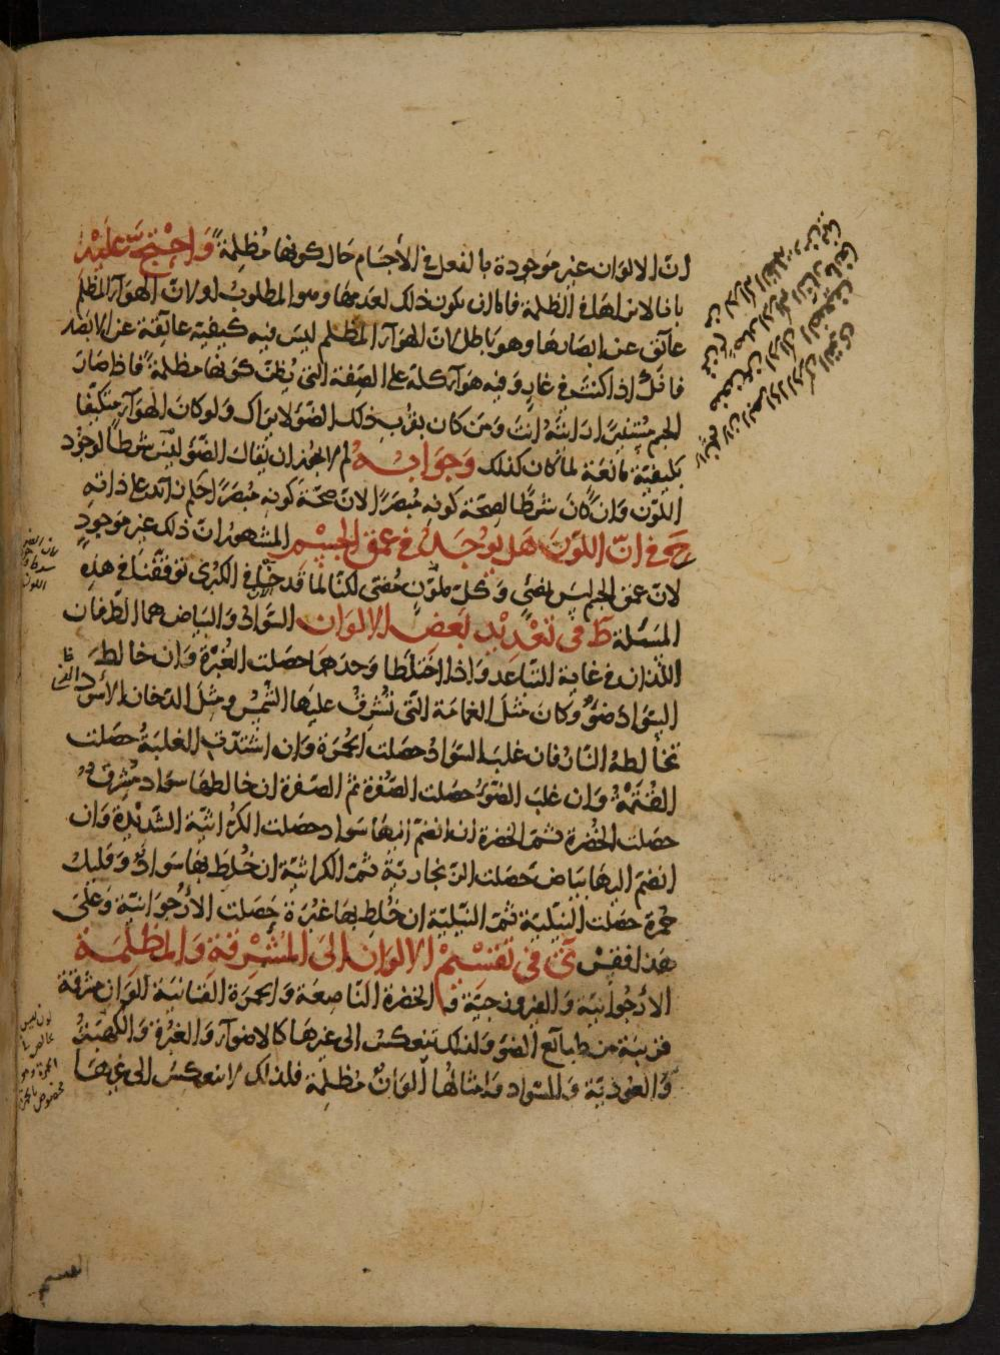 ان الالوان غير موجودة بالفعل في الأجسام حال كونها مظلمة واحتج عليه
بانا لا نراها في الظلمة فاما ان يكون ذلك لعدمها وهو المطلوب او لان الهوآء المظلم
عآئق عن ابصارها وهو باطل لان الهوآء المظلم ليس فيه كيفية عايقة عن الابصار
فانك اذا كنت في غار وفيه هوآء كله على الصفة التي يظن كونها مظلمة فاذا صار
الجسم مستنيرا رايته انت ومن كان بقرب ذلك الضوء لا يراك ولو كان الهوآء متكيفا
بكيفية مانعة لما كان كذلك وجوابه لم لا يجوز ان يقال الضوء ليس شرطا لوجود
اللون وان كان شرطا لصحة كونه مبصرا لان صحة كونه مبصرا حكم زآئد على ذاته
ح في ان اللون هل يوجد في عمق الجسم المشهور ان ذلك غير موجود
لان عمق الجسم ليس بمضئ وكل ملون مضئ لكنا لما قدحنا في الكبرى توقفنا في هذه
المسئلة ط في تعديد بعض الالوان السواد والبياض هما الطرفان
اللذان في غاية التباعد واذا اختلطا وحدهما حصلت الغبرة وان خالط
السواد ضوء وكان مثل الغمامة التي تشرق عليها الشمس ومثل الدخان الاسود
تخالطه النار فان غلب السواد حصلت الحمرة وان اشتدت الغلبة حصلت
القتمة وان غلب الضوء حصلت الصفرة ثم الصفرة ان خالطها سواد مشرق
حصلت الخضرة ثم الخضرة ان انضم اليها سواد حصلت الكراثية الشديدة وان
انضم اليها بياض حصلت الزنجارية ثم الكراثية ان خلط بها سواد وقليل
حمرة حصلت النيلية ثم النيلية ان خلط بها حمرة حصلت الارجوانية وعلى
هذا فقس ى في تقسيم الالوان الى المشرقة والمظلمة
الارجوانية والفيروزجية و الخضرة الناصعة والحمرة القانية الوان مشرقة
قريبة من طبآئع الضوء ولذلك تنعكس الى غيرها كالاضوآء والغبرة والكهبة
والعودية والسواد وامثالها الوان مظلمة فلذلك لا تنعكس الى غيرها